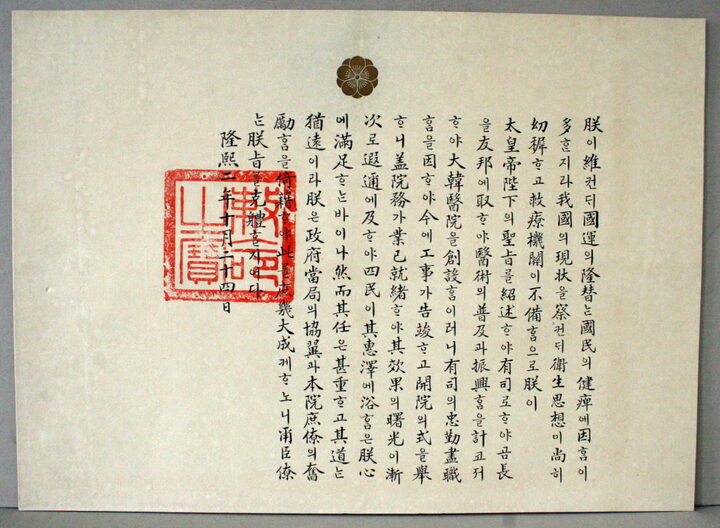 朕이維컨ᄃᆡ國運의隆替ᄂᆞᆫ國民의健瘁에因홈이
多ᄒᆞᆫ지라我國의現状을察컨ᄃᆡ衛生思想이尙히
幼穉ᄒᆞ고救療機關이不備홈으로朕이
太皇帝陛下의聖旨ᄅᆞᆯ紹述ᄒᆞ야有司로ᄒᆞ야곰長
을友邦에取ᄒᆞ야醫術의普及과振興홈을計코져
ᄒᆞ야大韓醫院을創設홈이러니有司의忠勤盡職
홈을因ᄒᆞ야今에工事가告竣ᄒᆞ고開院의式을擧
ᄒᆞ니盖院務가業已就緖ᄒᆞ야其效果의曙光이漸
次로遐邇에及ᄒᆞ야四民이其惠澤에浴홈은朕心
에滿足ᄒᆞᄂᆞᆫ바이나然而其任은甚重ᄒᆞ고其道ᄂᆞᆫ
猶遠이라朕은政府當局의協翼과本院庶僚의奮
勵홈을倚賴ᄒᆞ야此ᄅᆞᆯ庶幾大成케ᄒᆞ노니爾臣僚
ᄂᆞᆫ朕旨ᄅᆞᆯ克體ᄒᆞᆯ지어다
隆熙二年十月二十四日
勅命之寶